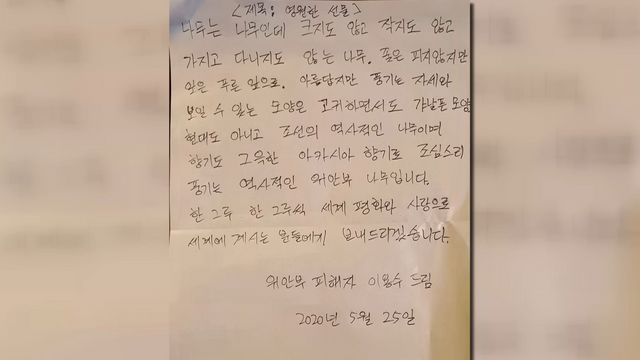 <제목: 영원한 선물>
나무는 나무인데 크지도 않고 작지도 않고
가지고 다니지도 않는 나무. 꽃은 피지않지만
잎은 푸른 잎으로. 아름답지만 풍기는 자세와
보일 수 있는 모양은 고귀하면서도 가냘픈 모양
현대도 아니고 조선의 역사적인 나무이며
향기도 그윽한 아카시아 향기로 조심스리
풍기는 역사적인 위안부 나무입니다.
한 그루 한 그루씩 세계 평화와 사랑으로
세계에 계시는 분들에게 보내드리겠습니다.
위안부 피해자 이용수 드림
2020년 5월 25일